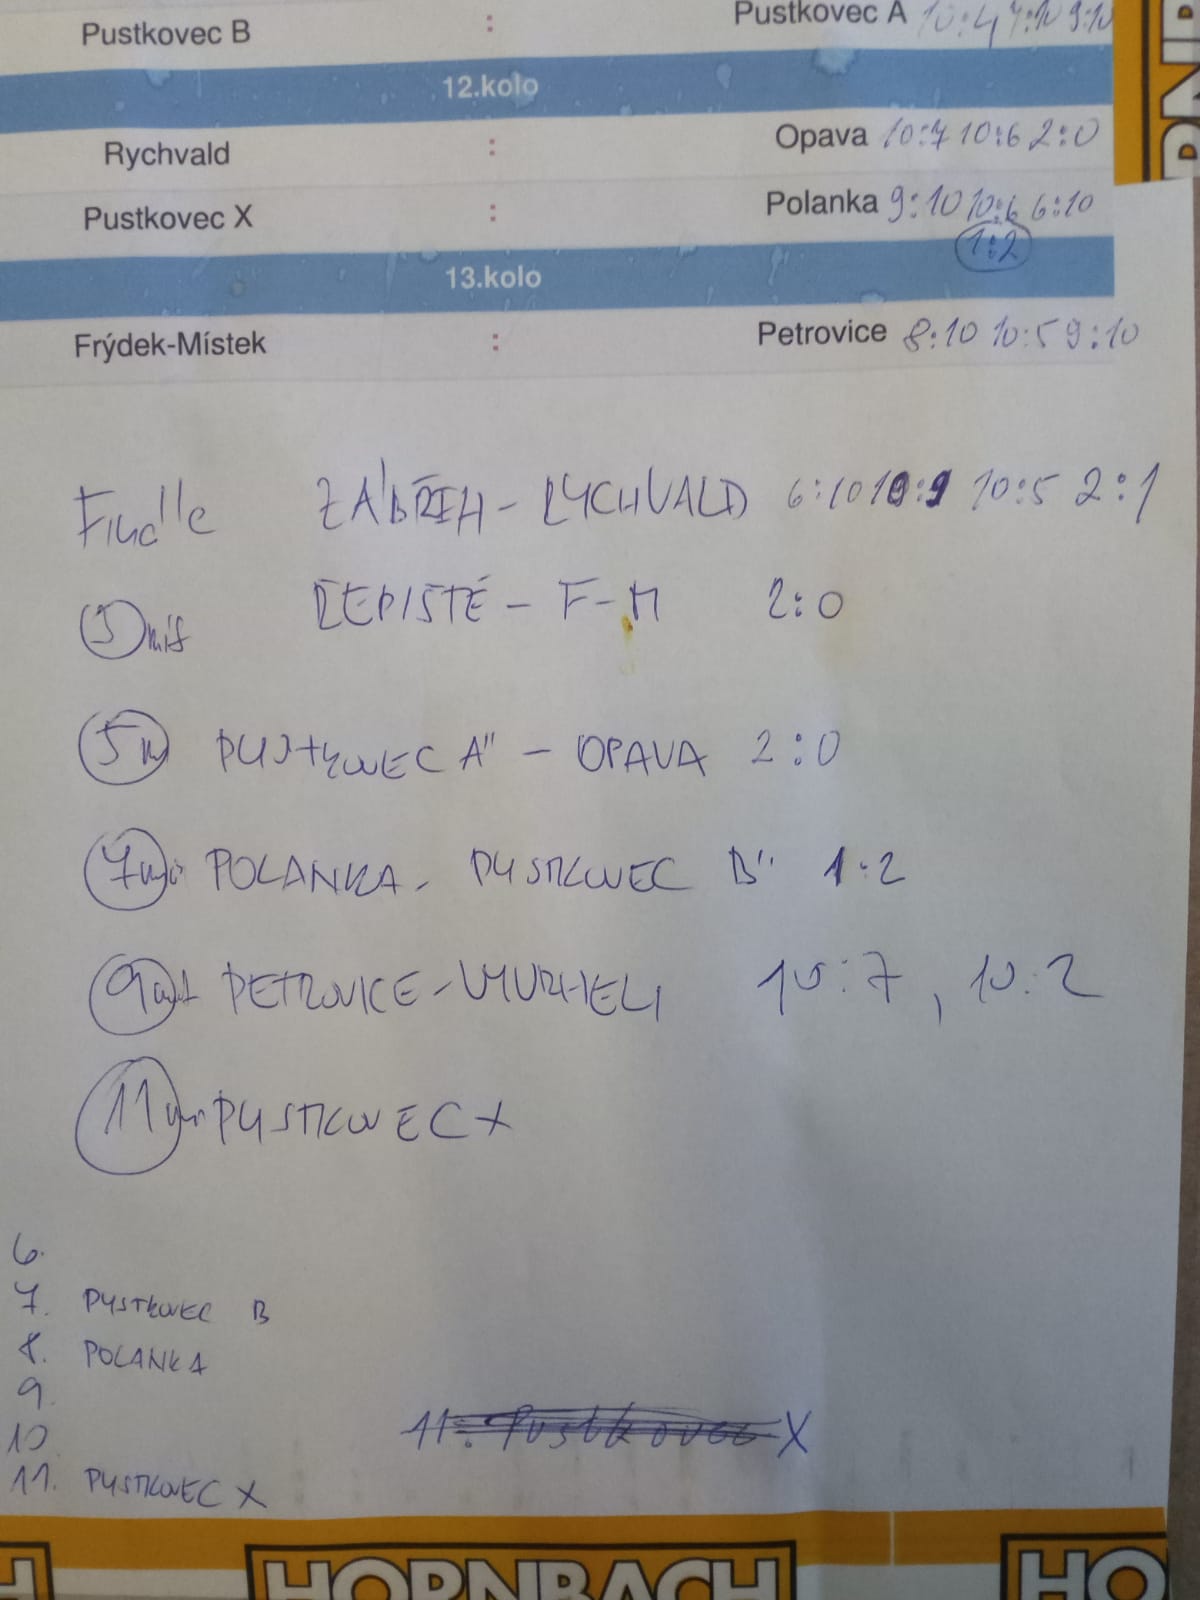 Pustkovec B : Pustkovec A 10:4 7:10 9:10
12.kolo
Rychvald : Opava 10:7 10:6 2:0
Pustkovec X : Polanka 9:10 10:6 6:10
1:2
13.kolo
Frýdek-Místek : Petrovice 8:10 10:5 9:10
ZÁBŘEH - RYCHVALD 6:10 10:9 10:5 2:1
ŘEPIŠTĚ - F-M 2:0
5m PUSTKOVEC A" - OPAVA 2:0
7 POLANKA - PUSTKOVEC B" 1:2
9 PETROVICE - 10:7, 10:2
11 PUSTKOVEC X
6.
7. PUSTKOVEC B
8. POLANKA
9.
10
11. Pustkovec X
11. PUSTKOVEC X
HORNBACH
HO